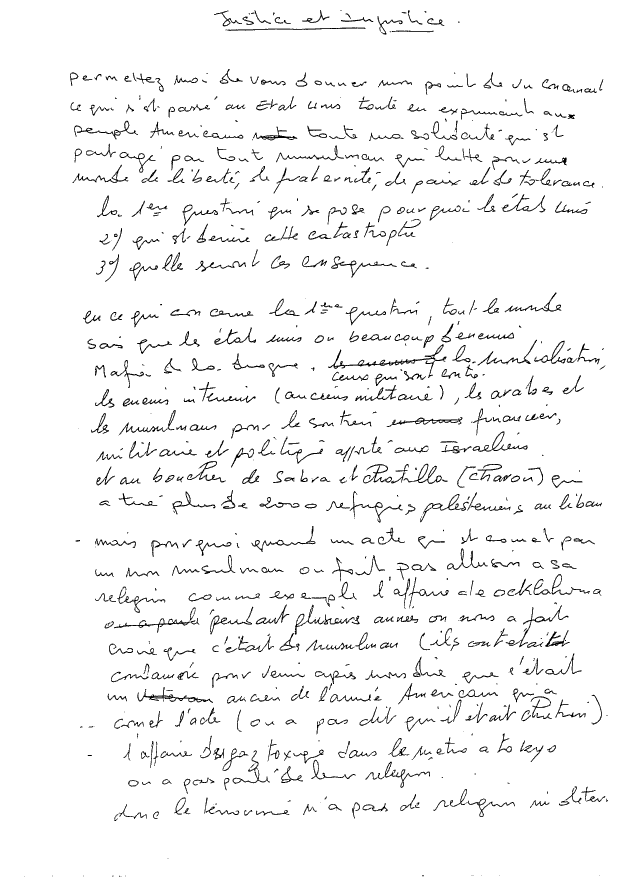 Justice et Injustice.
permettez moi de vous donner mon point de vu concernant
ce qui s'est passé au Etat unis toute en exprimant aux
peuple Americains toute ma solidarité qui st
partagé par tout musulman qui lutte pour une
monde de liberté, de fraternité, de paix et de tolerance.
la 1ère question qui se pose pourquoi les états unis
2°) qui st derière cette catastrophe
3°) quelle seront les consequence.
en ce qui concerne la 1ère question, tout le monde
sais que les états unis on beaucoup d'enemis
Mafia de la drogue, ceux qui sont contre la mondialisation,
les enemis interieur (anciens militaire), les arabes et
les musulmans pour le soutien financier,
militaire et politique apporté aux Israeliens
et au boucher de Sabra et Chatilla (Charon) qui
a tué plus de 2000 refugiés palesteniens au liban
- mais pourquoi quand un acte qui st comet par
un non musulman on fait pas allusion a sa
relegion comme exemple l'affaire de ocklahoma
pendant plusieurs annes on nous a fait
croire que c'était des musulman (ils ont etait
condamné pour venir après nous dire que c'était
un ancien de l'armée Américain qui a
comet l'acte (on a pas dit qu'il était chretien).
- l'affaire des gaz toxique dans le metro a tokyo
on a pas parlé de leur relegion.
donc le terrorisme n'a pas de relegion ni